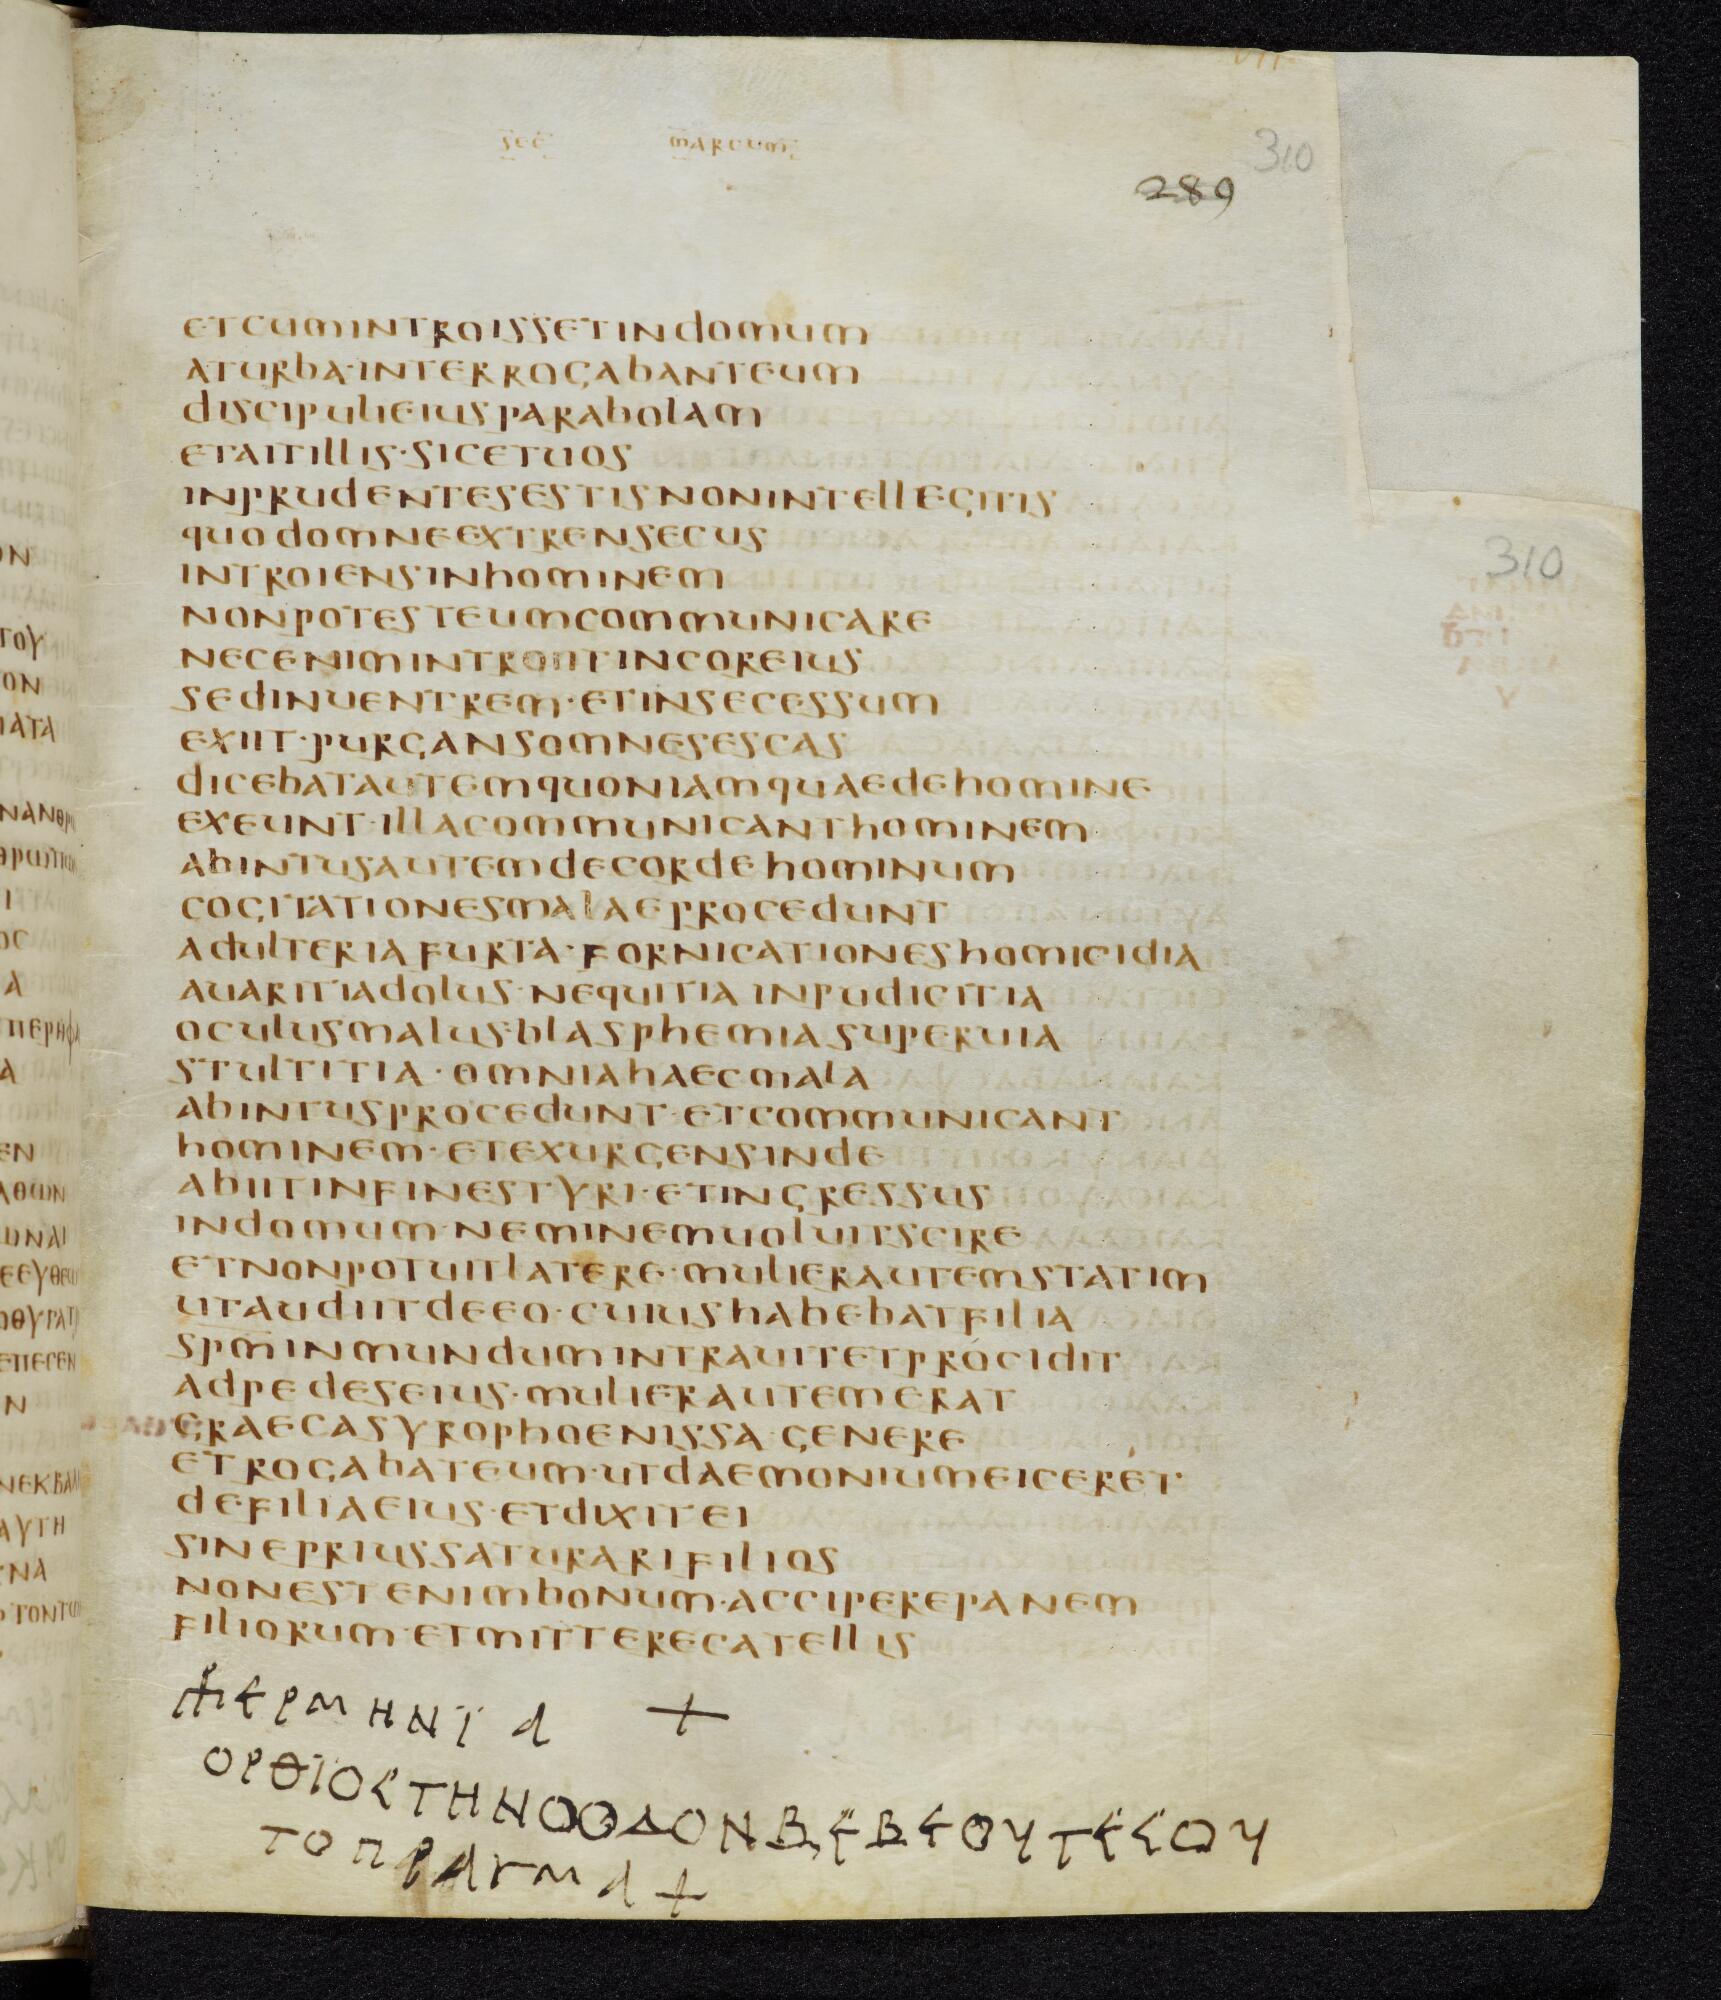 sec marcum
310
289
etcumintroissetindomum
aturba·interrogabanteum
discipulieiusparabolam
etaitillis·sicetuos
inprudentesestisnonintellegitis
quodomneextrensecus
introiensinhominem
nonpotesteumcommunicare
necenimintroitincoreius
sedinuentrem·etinsecessum
exiit·purgansomnesescas
dicebatautemquoniamquaedehomine
exeunt·illacommunicanthominem
abintusautemdecordehominum
cogitationesmalaeprocedunt
adulteriafurta·fornicationeshomicidia
auaritiadolus·nequitiainpudicitia
oculusmalus·blasphemiasuperuia
stultitia·omniahaecmala
abintusprocedunt·etcommunicant
hominem·etexurgensinde
abiitinfinestyri·etingressus
indomum·neminemuoluitscire
etnonpotuitlatere·mulierautemstatim
utaudiitdeeo·cuiushabebatfilia
spm̄inmundumintrauitetprocidit
adpedeseius·mulierautemerat
graecasyrophoenissa·genere
etrogabateum·utdaemoniumeiceret
310
defiliaeius·etdixitei
sinepriussaturarifilios
nonestenimbonum·accipererepanem
filiorum·etmitterecatellis
ερμηνϊα +
ορθϊοςτηνοοδονβεβεουτεςου
τοπραγμα +